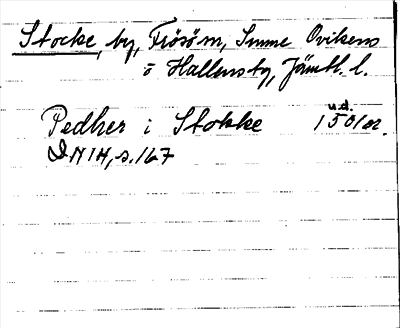 Stocke, by, Frösö sn, Sunne Ovikens
o Hallens tg, Jämtl. l.
Pedher i Stokke u.d. 1501 or.
DN 14, s. 167